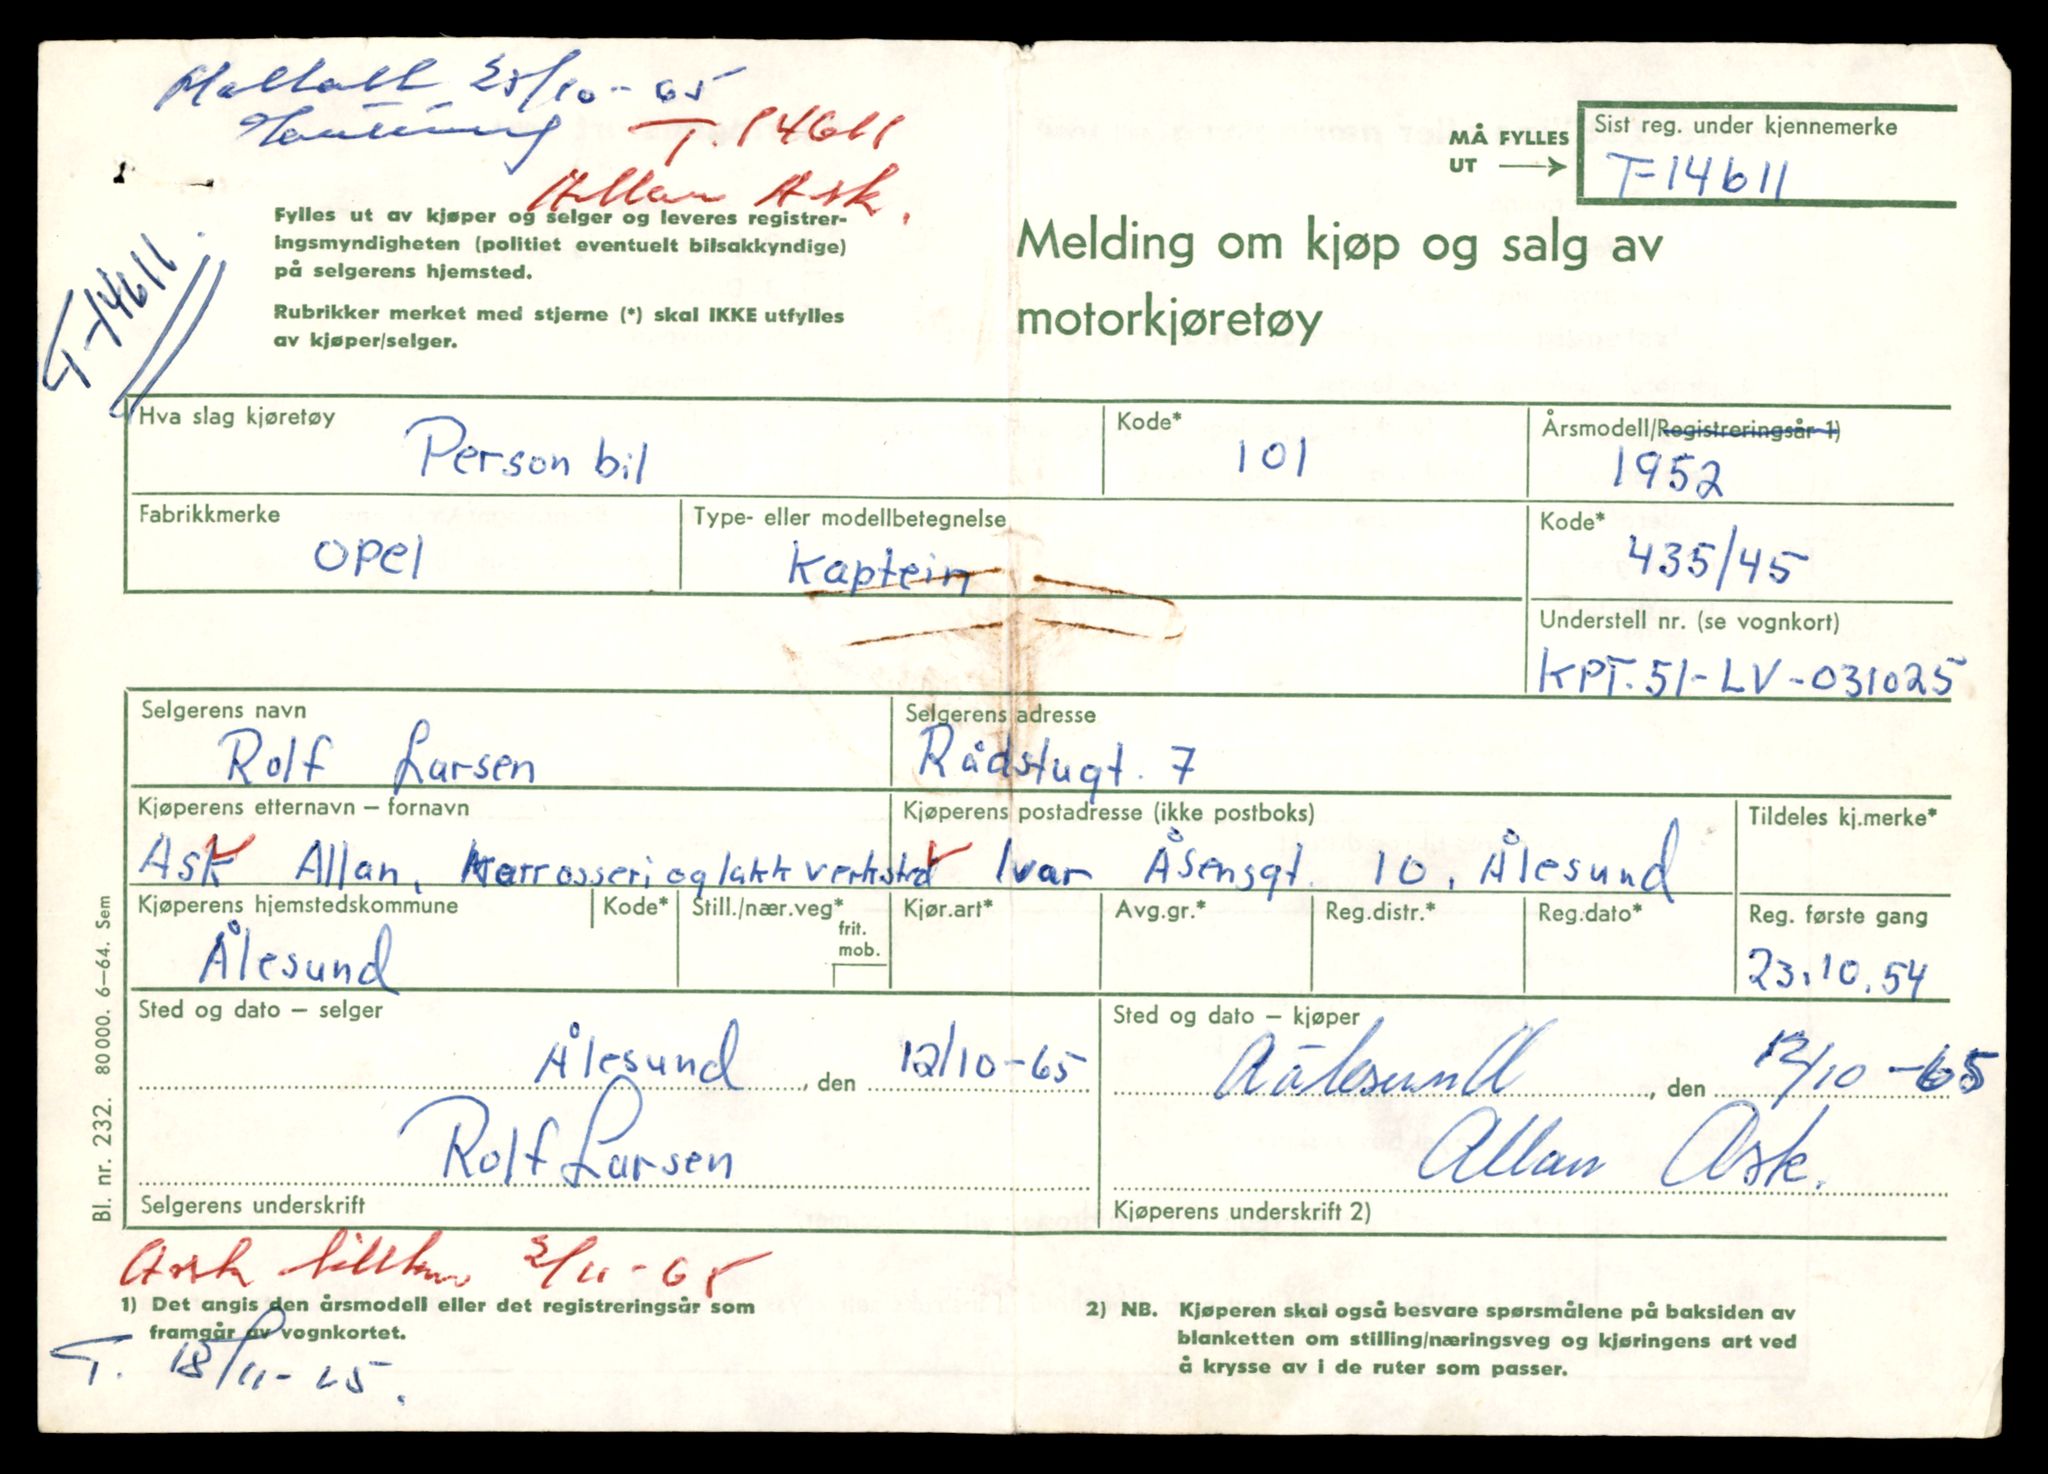 Mottatt 25/10-65
T. 14611
Allan Ask.
T-14611.
Fylles ut av kjøper og selger og leveres registrer-
ingsmyndigheten (politiet eventuelt bilsakkyndige)
på selgerens hjemsted.
Rubrikker merket med stjerne (*) skal IKKE utfylles
av kjøper/selger.
MÅ FYLLES
UT
Sist reg. under kjennemerke
T-14611
Melding om kjøp og salg av
motorkjøretøy
Hva slag kjøretøy
Personbil
Kode*
101
Årsmodell/Registreringsår 1)
1952
Fabrikkmerke
Opel
Type- eller modellbetegnelse
Kaptein
Kode*
435/45
Understell nr. (se vognkort)
KPT. 51-LV-031025
Selgerens navn
Rolf Larsen
Selgerens adresse
Rådstugt. 7
Kjøperens etternavn – fornavn
Ask Allan, Karrosseri og lakkverksted
Kjøperens postadresse (ikke postboks)
Ivar Åsensgt. 10, Ålesund
Tildeles kj.merke*
Kjøperens hjemstedskommune
Ålesund
Kode*
Still./nær.veg*
frit.
mob.
Kjør.art*
Avg.gr.*
Reg.distr.*
Reg.dato*
Reg. første gang
23.10.54
Sted og dato – selger
Ålesund, den 12/10-65
Rolf Larsen
Selgerens underskrift
Sted og dato – kjøper
Aalesund, den 12/10-65
Allan Ask.
Kjøperens underskrift 2)
Bl. nr. 232. 80 000. 6–64. Sem
Ask 2/11-65
1) Det angis den årsmodell eller det registreringsår som
framgår av vognkortet.
T. 18/11-65.
2) NB. Kjøperen skal også besvare spørsmålene på baksiden av
blanketten om stilling/næringsveg og kjøringens art ved
å krysse av i de ruter som passer.